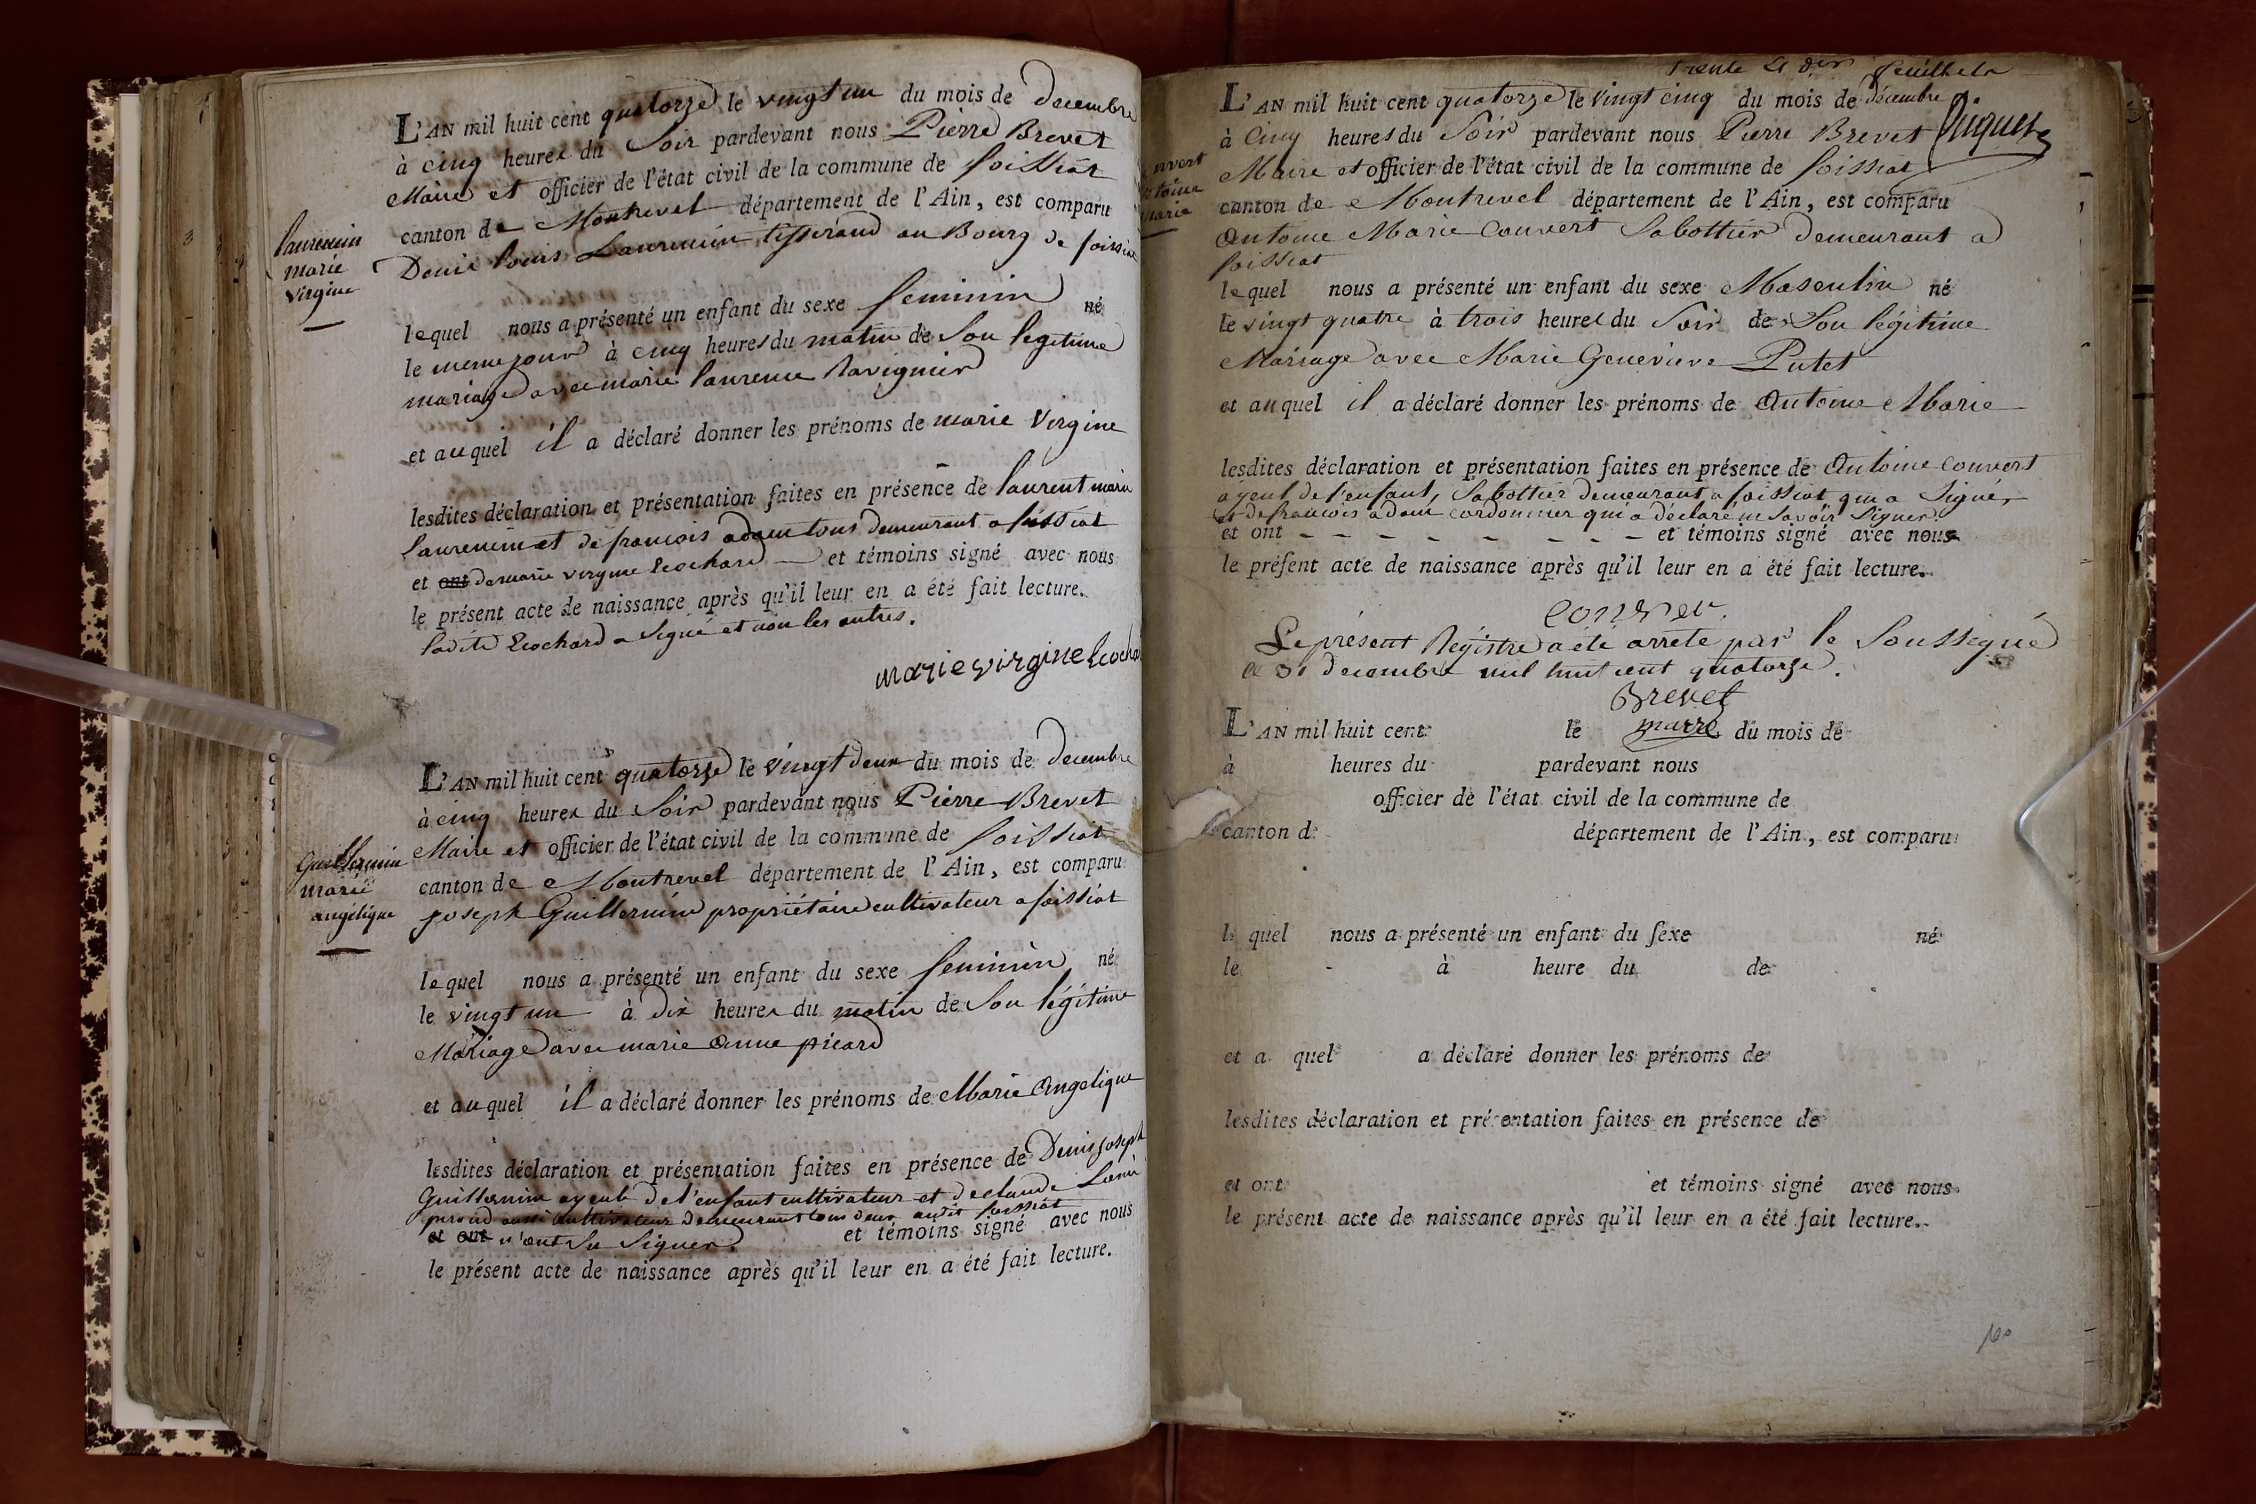 L'AN mil huit cent quatorze le vingt un du mois de decembre
à cinq heures du Soir pardevant nous Pierre Brevet
Maire et officier de l'état civil de la commune de foissiat
canton de Montrevel département de l'Ain, est comparu
Denis louis Laurencin tisserand au Bourg de foissiat
laurencin
marie
virgine
lequel nous a présenté un enfant du sexe feminin né
le meme jour à cinq heures du matin de Son legitime
mariage avec marie laurence Ravignier
et auquel il a déclaré donner les prénoms de marie Virgine
lesdites déclaration et présentation faites en présence de laurent marie
laurencin et de francois adam tous demeurant a foissiat
et ont de marie virgine Ecochard et témoins signé avec nous
le présent acte de naissance après qu'il leur en a été fait lecture.
ladite Ecochard a Signé et non les autres.
marie virgine Ecochar
L'AN mil huit cent quatorze le vingt deux du mois de decembre
à cinq heures du Soir pardevant nous Pierre Brevet
Maire et officier de l'état civil de la commune de foissiat
canton de Montrevel département de l'Ain, est comparu
joseph Guillermin propriétaire cultivateur a foissiat
Guillermin
marie
angélique
lequel nous a présenté un enfant du sexe feminin né
le vingt un à dix heures du matin de Son légitime
Mariage avec marie Anne picard
et auquel il a déclaré donner les prénoms de Marie Angelique
lesdites déclaration et présentation faites en présence de Denis joseph
Guillermin ayeul de l'enfant cultivateur et de claude
aussi cultivateur demeurant tous deux audit foissiat
et ont n'ont Su Signer. et témoins signé avec nous
le présent acte de naissance après qu'il leur en a été fait lecture.
trente et feuillets
L'AN mil huit cent quatorze le vingt cinq du mois de décembre
à Cinq heures du Soir pardevant nous Pierre Brevet
Maire et officier de l'état civil de la commune de foissiat
canton de Montrevel département de l'Ain, est comparu
Antoine Marie Convert Sabottier demeurant a
foissiat
nvert
toine
marie
lequel nous a présenté un enfant du sexe Masculin né
le vingt quatre à trois heures du Soir de Son légitime
Mariage avec Marie Geneviève Putet
et auquel il a déclaré donner les prénoms de Antoine Marie
lesdites déclaration et présentation faites en présence de Antoine convert
ayeul de l'enfant, Sabottier demeurant a foissiat qui a Signé,
et de francois adam cordonnier qui a déclaré ne Savoir Signer.
et ont - - - - - - - - et témoins signé avec nous
le présent acte de naissance après qu'il leur en a été fait lecture.
Conver
Le présent Régistre a été arrêté par le Soussigné
le 31 decembre mil huit cent quatorze.
Brevet
maire
L'AN mil huit cent le du mois de
à heures du pardevant nous
officier de l'état civil de la commune de
canton d département de l'Ain, est comparu
l quel nous a présenté un enfant du sexe né
le à heure du de
et a quel a déclaré donner les prénoms de
lesdites déclaration et présentation faites en présence de
et ont et témoins signé avec nous
le présent acte de naissance après qu'il leur en a été fait lecture.